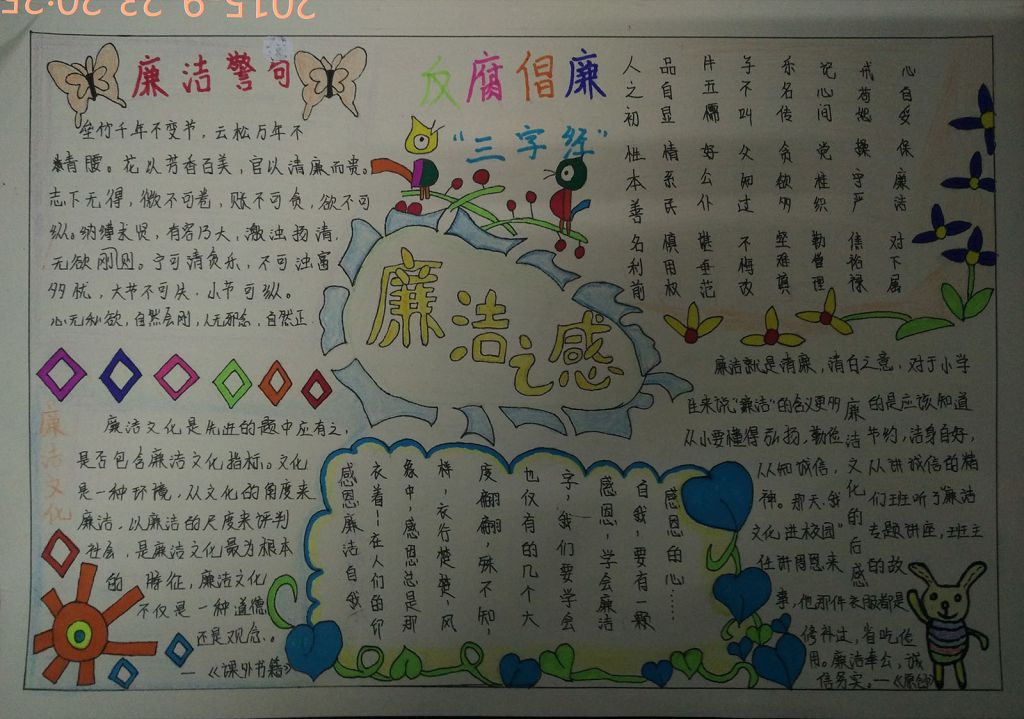 2015-9-23 20:25
廉洁警句
坚竹千年不变节，云松万年不
情腰。花以芳香百美，官以清廉而贵。
志下无得，微不可卷，账不可贪，欲不可
纵。纳博求贤，有容乃大，激浊扬清，
无欲刚则。宁可清贫乐，不可浊富
多忧，大节不可失，小节可纵。
心无私欲，自然会刚，人无邪念，自然正
反腐倡廉
“三字经”
人之初 性本善 名利前
品自显 情系民 慎用权
片五儒 好公仆 堪垂范
子不叫 父知过 不悔改
乐名传 贪欲多 坚难填
记心间 党组织 勤管理
戒苟妮 操守严 修裕禄
心自安 保廉洁 对下属
廉洁之感
廉洁文化
廉洁文化是先进的题中应有之，
是否包含廉洁文化指标。文化
是一种环境，从文化的角度来
廉洁，以廉洁的尺度来评判
社会，是廉洁文化最为根本
的特征，廉洁文化
不仅是一种道德
还是观念。
—《课外书籍》
感恩的心……
自我，要有一颗
感恩，学会廉洁
字，我们要学会
也仅有的几个大
废翩翩，殊不知，
样，衣行楚楚，风
象中，感恩总是那
衣着！在人们的印
感恩廉洁自我
廉洁文化的后感
廉洁就是清廉，清白之意，对于小学
生来说“廉洁”的含义更多的是应该知道
从小要懂得弘扬，勤俭节约，洁身自好，
从细诚信，从讲诚信的精
神。那天，我们班听了廉洁
文化进校园专题讲座，班主
任讲周恩来的故
事，他那件衣服都是
修补过，省吃俭
用。廉洁奉公，诚
信务实。—《原创》